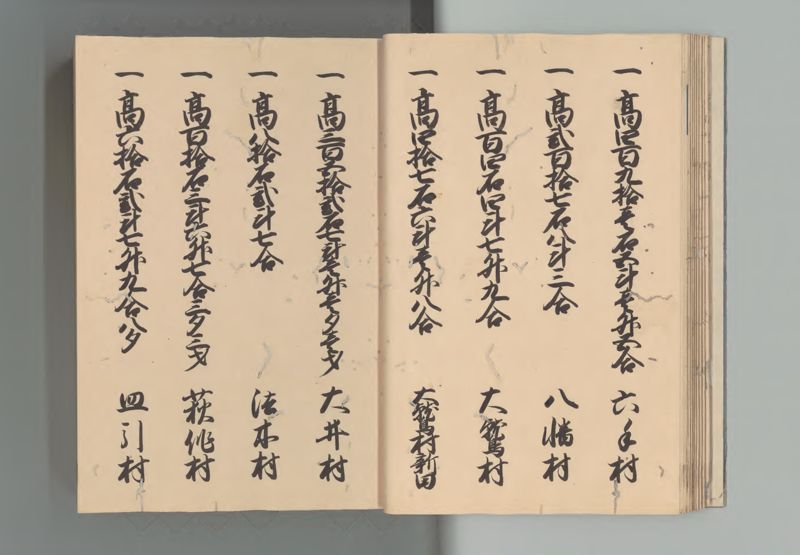 一 高四百九拾壱石五斗壱升五合 六手村
一 高弐百拾七石八斗三合 八幡村
一 高百四石四斗七升九合 大鷲村
一 高四拾七石六斗壱升八合 大鷲村新田
一 高三百五拾弐石七斗壱升壱夕壱才 大井村
一 高八拾石弐斗七合 法木村
一 高百拾石三斗六升七合三夕二才 萩作村
一 高六拾石弐斗七升九合八夕 皿引村